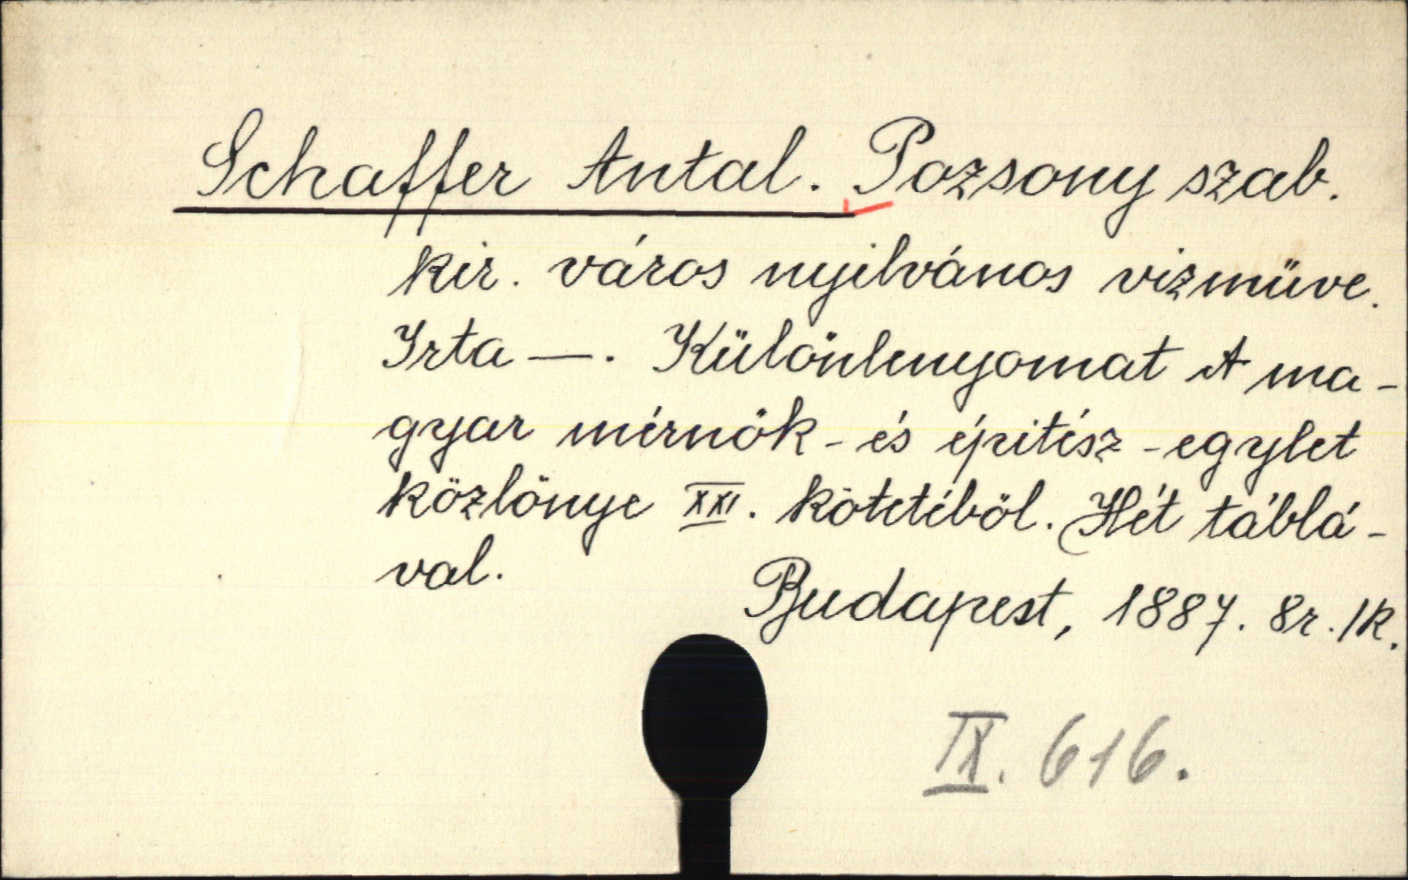 Schaffer Antal. Pozsony szab.
kir. város nyilvános vizmüve.
Irta —. Különlenyomat A ma-
gyar mérnök- és épitész-egylet
közlönye XXI. kötetéböl. Hét táblá-
val.
Budapest, 1887. 8r. 1k.
IX. 616.